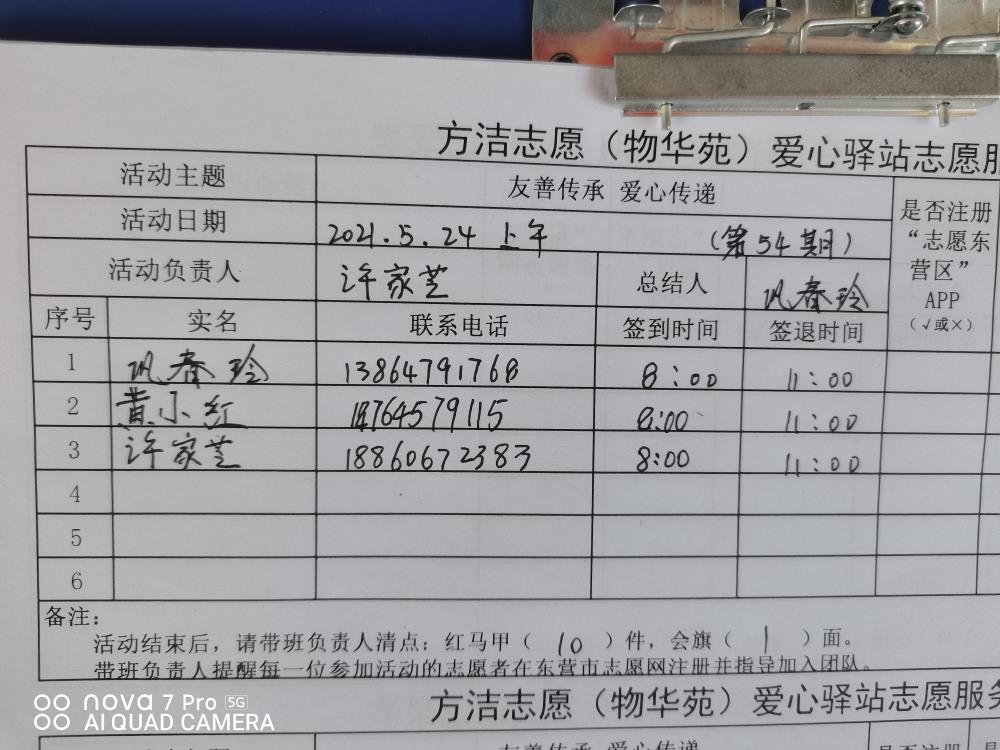 方洁志愿（物华苑）爱心驿站志愿服
活动主题 友善传承 爱心传递 是否注册“志愿东营区”APP（√或×）
活动日期 2021.5.24 上午 （第54期）
活动负责人 许家芝 总结人 巩春玲
序号 实名 联系电话 签到时间 签退时间
1 巩春玲 13864791768 8:00 11:00
2 黄小红 14764579115 8:00 11:00
3 许家芝 18860672383 8:00 11:00
4
5
6
备注：
活动结束后，请带班负责人清点：红马甲（ 10 ）件，会旗（ 1 ）面。
带班负责人提醒每一位参加活动的志愿者在东营市志愿网注册并指导加入团队。
方洁志愿（物华苑）爱心驿站志愿服务
友善传承 爱心传递 是否注册
nova 7 Pro 5G
AI QUAD CAMERA